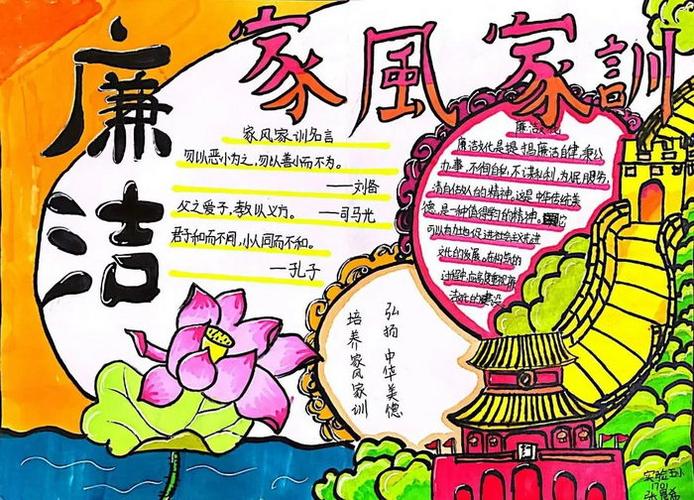 家風家訓
廉洁
家风家训名言
勿以恶小为之，勿以善小而不为。
——刘备
父之爱子，教以义方。 ——司马光
君子和而不同，小人同而不和。
——孔子
廉洁
廉洁文化是提倡廉洁自律，秉公
办事，不徇自私，不谋私利，为民服务，
清白做人的精神，这是中华传统美
德，是一种值得的精神。
可以有力地促进社会主义先进
文化的发展。在构筑的
过程中，应
洁化的建设
弘扬中华美德
培养家风家训
实验五小
1701
张